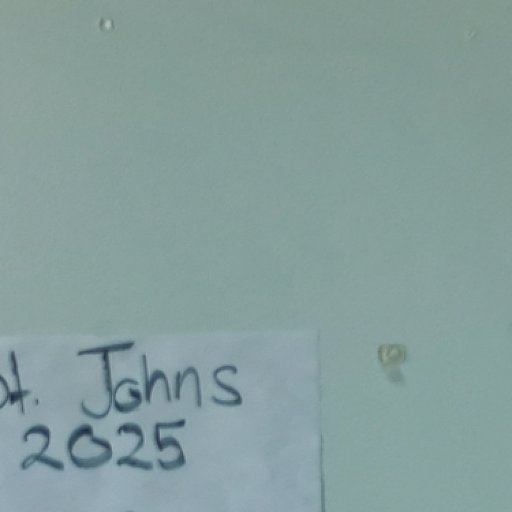 St. Johns
2025